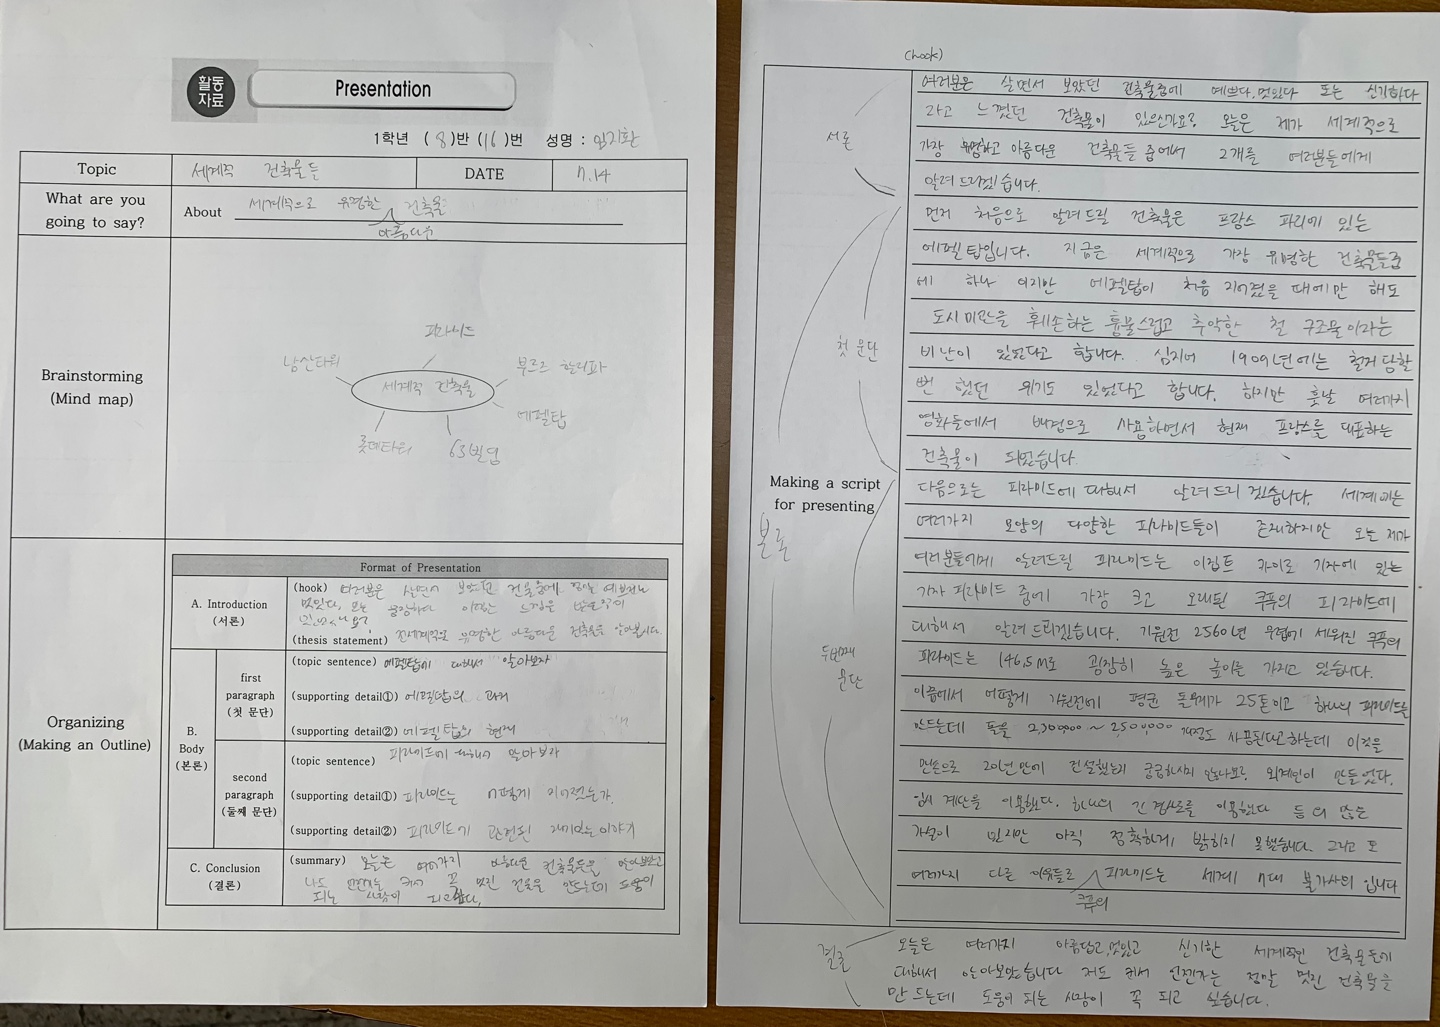 활동
자료
Presentation
1학년 ( 8 )반 ( 16 )번 성명 : 임지환
Topic
세계적 건축물들
DATE
7.14
What are you
going to say?
About 세계적으로 유명한 건축물
아름다운
Brainstorming
(Mind map)
피라미드
남산타워
부르즈 할리파
세계적 건축물
에펠탑
롯데타워
63빌딩
Organizing
(Making an Outline)
Format of Presentation
A. Introduction
(서론)
(hook) 여러분은 살면서 보았던 건축물중에 예쁘거나
멋있다, 또는 굉장하다 느낌은 받은적이
있으시나요?
(thesis statement) 전세계적으로 유명한 아름다운 건축물을 알아봅시다.
B.
Body
(본론)
first
paragraph
(첫 문단)
(topic sentence) 에펠탑에 대해서 알아보자
(supporting detail①) 에펠탑의 과거
(supporting detail②) 에펠탑의 현재
second
paragraph
(둘째 문단)
(topic sentence) 피라미드에 대해서 알아보자
(supporting detail①) 피라미드는 어떻게 지어졌는가.
(supporting detail②) 피라미드에 관련된 재미있는 이야기
C. Conclusion
(결론)
(summary) 오늘은 여러가지 아름다운 건축물들을 알아보았고
나도 언젠가는 커서 꼭 멋진 건물을 만드는데 도움이
되는 사람이 되고싶다.
(hook)
Making a script
for presenting
서론
여러분은 살면서 보았던 건축물중에 예쁘다,멋있다 또는 신기하다
라고 느꼈던 건축물이 있으신가요? 오늘은 제가 세계적으로
가장 유명하고 아름다운 건축물들 중에서 2개를 여러분들에게
알려 드리겠습니다.
본론
첫 문단
먼저 처음으로 알려드릴 건축물은 프랑스 파리에 있는
에펠탑입니다. 지금은 세계적으로 가장 유명한 건축물들중
에 하나 이지만 에펠탑이 처음 지어졌을 때에만 해도
도시미관을 훼손하는 흉물스럽고 추악한 철 구조물이라는
비난이 있었다고 합니다. 심지어 1909년에는 철거 당할
뻔 했던 위기도 있었다고 합니다. 하지만 훗날 여러가지
영화들에서 배경으로 사용하면서 현재 프랑스를 대표하는
건축물이 되었습니다.
두번째
문단
다음으로는 피라미드에 대해서 알려드리겠습니다. 세계에는
여러가지 모양의 다양한 피라미드들이 존재하지만 오늘 제가
여러분들에게 알려드릴 피라미드는 이집트 카이로 기자에 있는
기자 피라미드 중에 가장 크고 오래된 쿠푸의 피라미드에
대해서 알려 드리겠습니다. 기원전 2560년 무렵에 세워진 쿠푸의
피라미드는 146.5M로 굉장히 높은 높이를 가지고 있습니다.
이쯤에서 어떻게 기원전에 평균 돌무게가 2.5톤이고 하나의 피라미드를
만드는데 돌을 2,300,000 ~ 2,500,000 개정도 사용된다고하는데 이것을
맨손으로 20년만에 건설했는지 궁금하시지 않나요? 외계인이 만들었다.
임시 계단을 이용했다. 하나의 긴 경사로를 이용했다 등 더 많은
가설이 있지만 아직 정확하게 밝히지 못했습니다. 그리고 또
여러가지 다른 이유들로 피라미드는 세계 7대 불가사의 입니다
쿠푸의
결론
오늘은 여러가지 아름답고,멋있고 신기한 세계적인 건축물들에
대해서 알아보았습니다 저도 커서 언젠가는 정말 멋진 건축물을
만드는데 도움이 되는 사람이 꼭 되고 싶습니다.